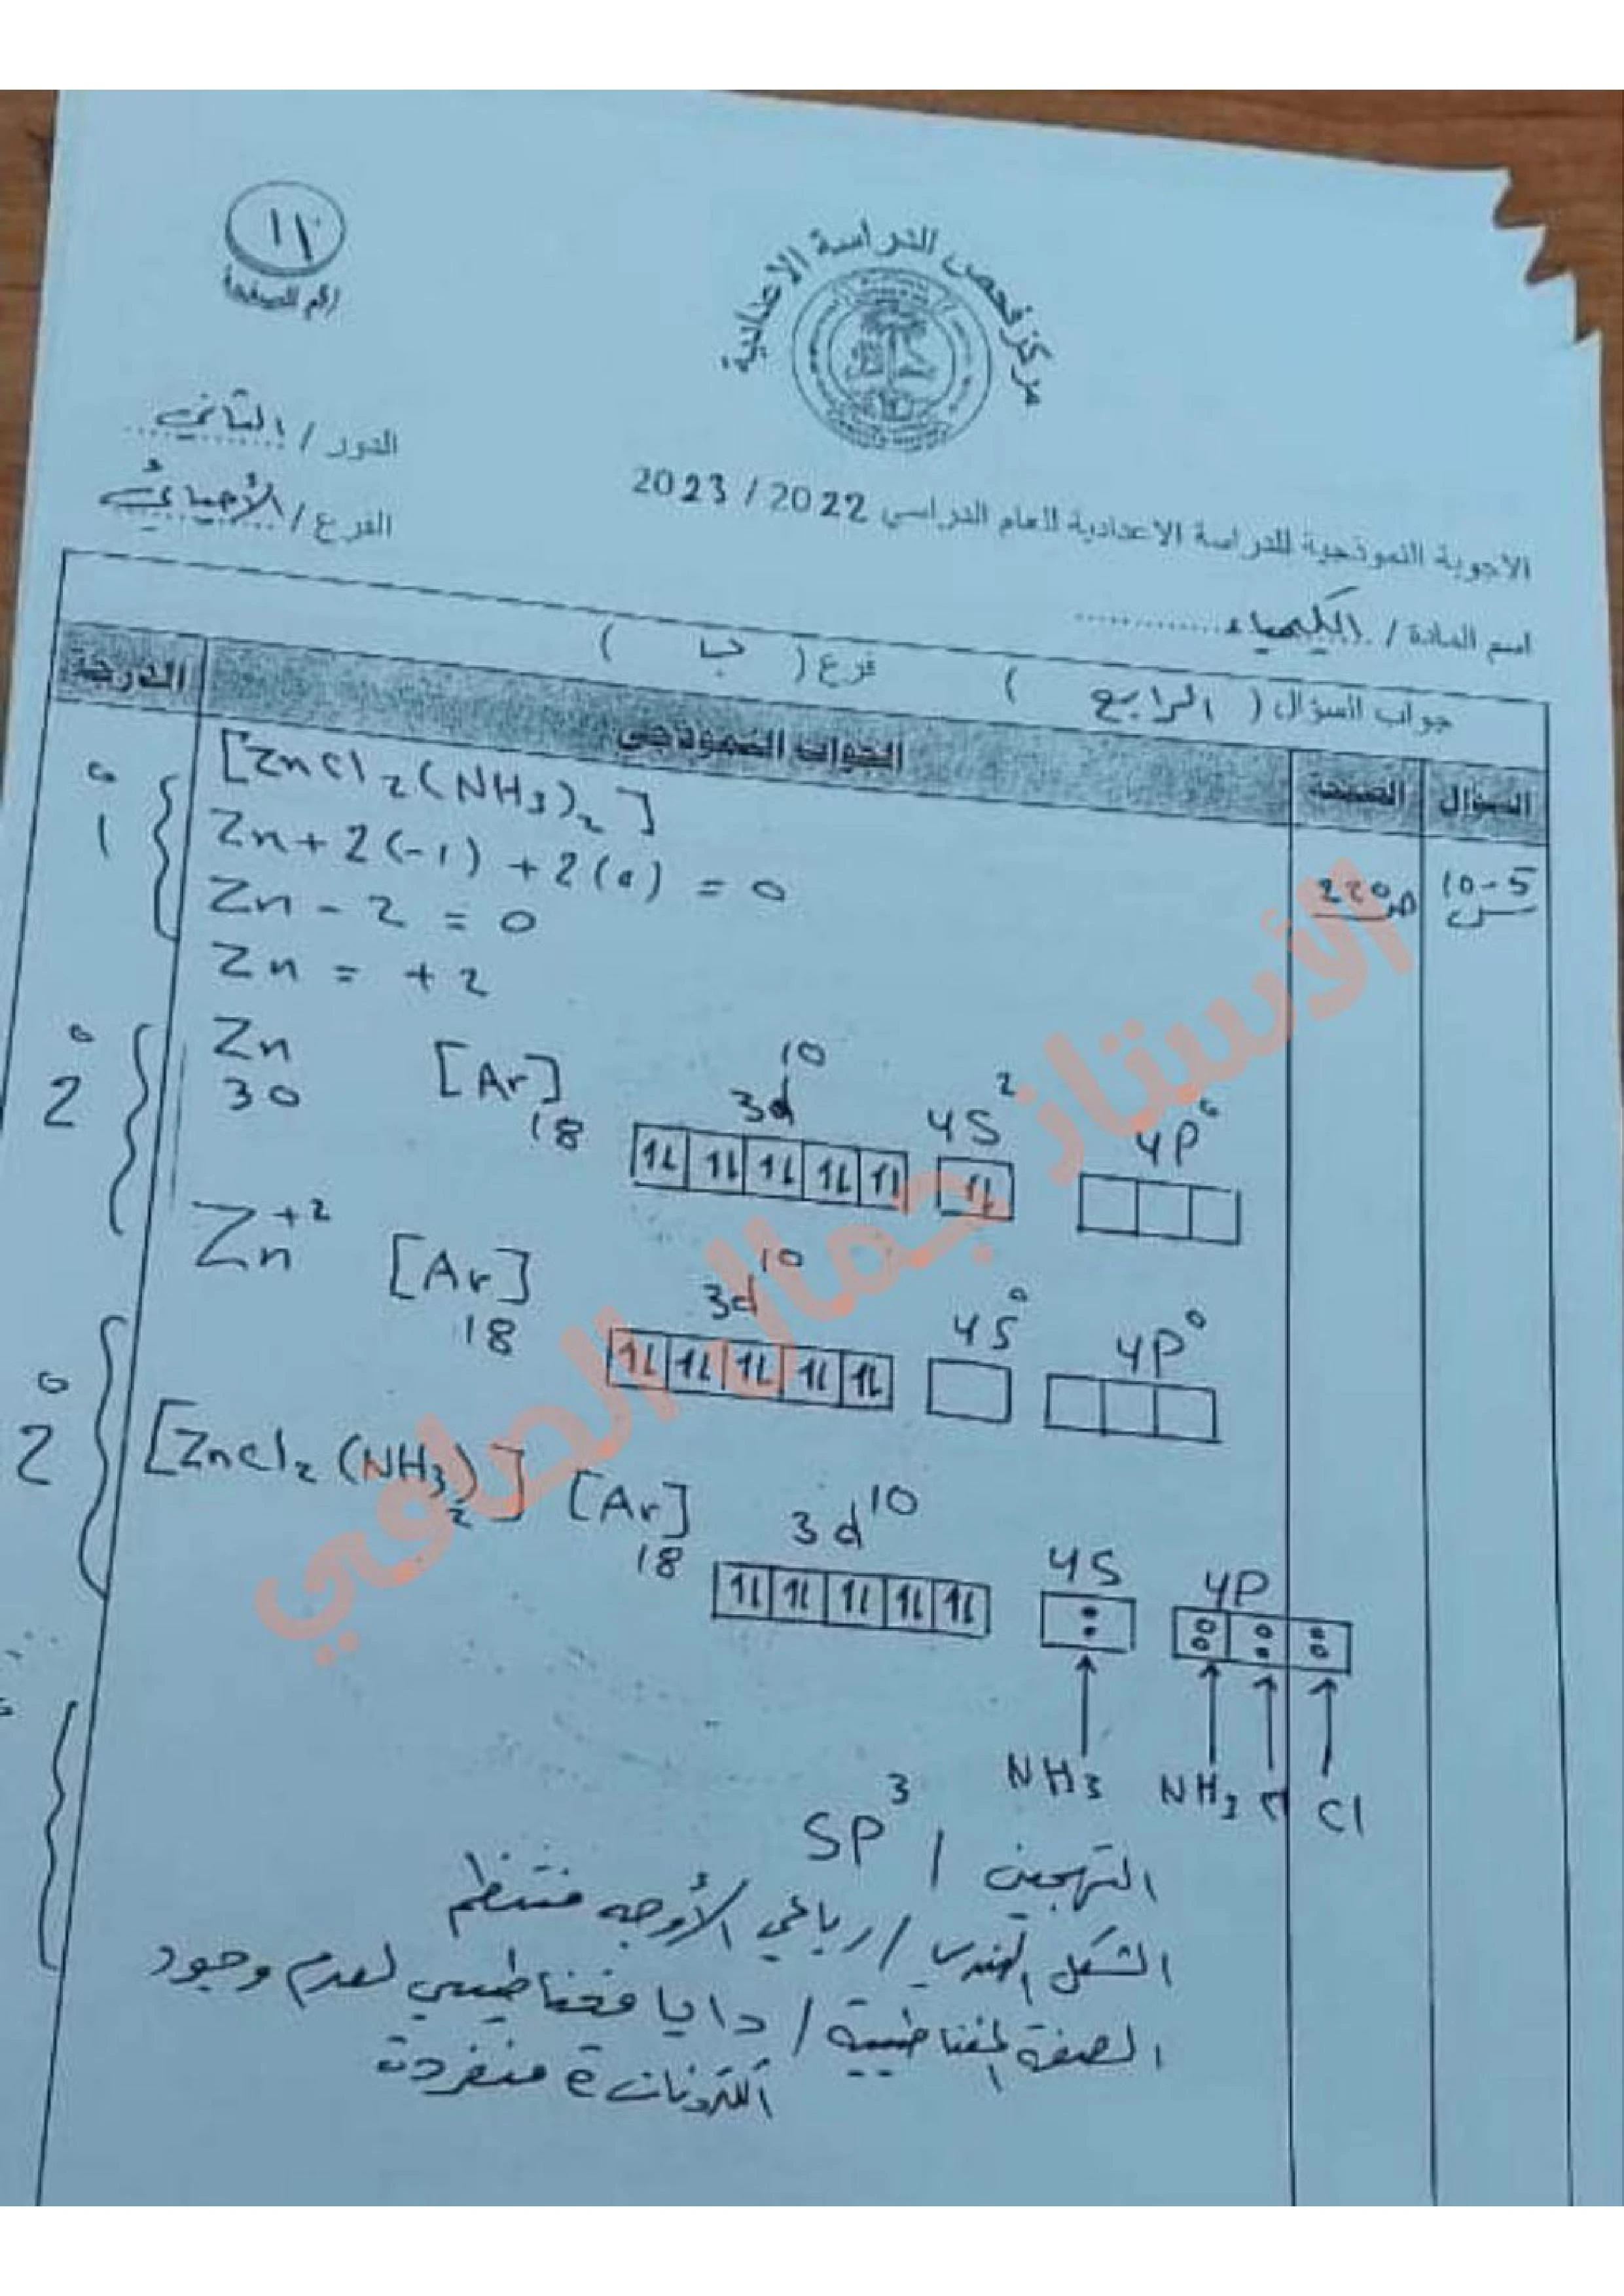 ١١
رقم الصفحة
مركز فحص الدراسة الاعدادية
الدور / الثاني
الفرع / الأحيائي
الاجوبة النموذجية للدراسة الاعدادية للعام الدراسي 2022 / 2023
اسم المادة / الكيمياء
جواب السؤال ( الرابع ) فرع ( ب )
السؤال الصفحة الجواب النموذجي الدرجة
س 5-10 ص 220
[ZnCl2(NH3)2]
1
Zn + 2(-1) + 2(0) = 0
Zn - 2 = 0
Zn = +2
2
Zn 30 [Ar] 18 3d10 4S2 4P0
Zn+2 [Ar] 18 3d10 4S0 4P0
2
[ZnCl2(NH3)2] [Ar] 18 3d10 4S 4P
NH3 NH3 Cl Cl
التهجين / SP3
الشكل الهندسي / رباعي الأوجه منتظم
الصفة المغناطيسية / دايا مغناطيسي لعدم وجود
الكترونات e منفردة
الأستاذ جمال الصافي